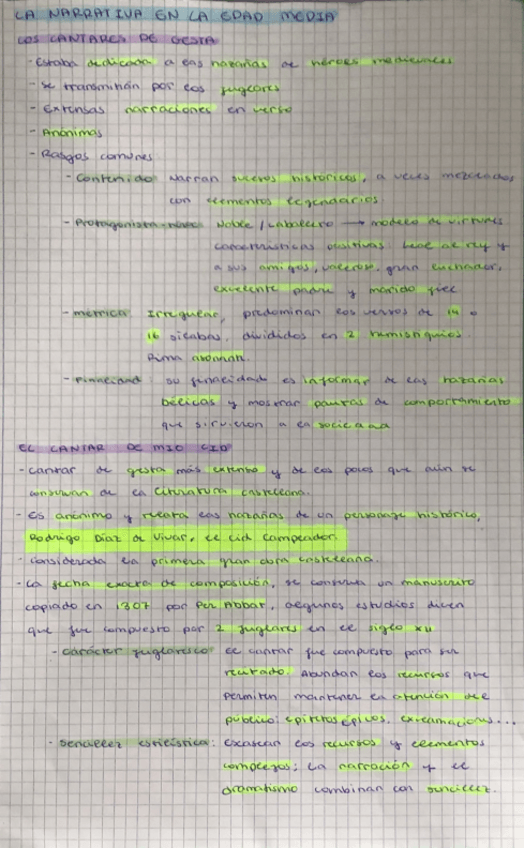 LA NARRATIVA EN LA EDAD MEDIA
LOS CANTARES DE GESTA
- Estaba dedicada a las hazañas de héroes medievales
- Se transmitían por los juglares
- Extensas narraciones en verso
- Anónimas
- Rasgos comunes
- Contenido: Narran sucesos históricos, a veces mezclados
con elementos legendarios.
- Protagonista: Noble / Caballero → modelo de virtudes
características positivas. Leal al rey y
a sus amigos, valeroso, gran luchador,
excelente padre y marido fiel
- métrica Irregular, predominan los versos de 14 o
16 sílabas, divididos en 2 hemistiquios
Rima asonan.
- Finalidad: su finalidad es informar de las hazañas
bélicas y mostrar pautas de comportamiento
que sirvieron a la sociedad
EL CANTAR DE MIO CID
- cantar de gesta más extenso y de los pocos que aún se
conservan de la literatura castellana.
- Es anónimo y relata las hazañas de un personaje histórico,
Rodrigo Díaz de Vivar, el Cid Campeador.
- considerada la primera gran obra castellana.
- La fecha exacta de composición, se conserva un manuscrito
copiado en 1307 por Per Abbat, algunos estudios dicen
que fue compuesto por 2 juglares en el siglo XII
- carácter juglaresco el cantar fue compuesto para ser
recitado. Abundan los recursos que
permiten mantener la atención del
público: epítetos épicos, exclamacions...
- Sencillez estilística: Escasean los recursos y elementos
complejos; La narración y el
dramatismo combinan con sencillez.